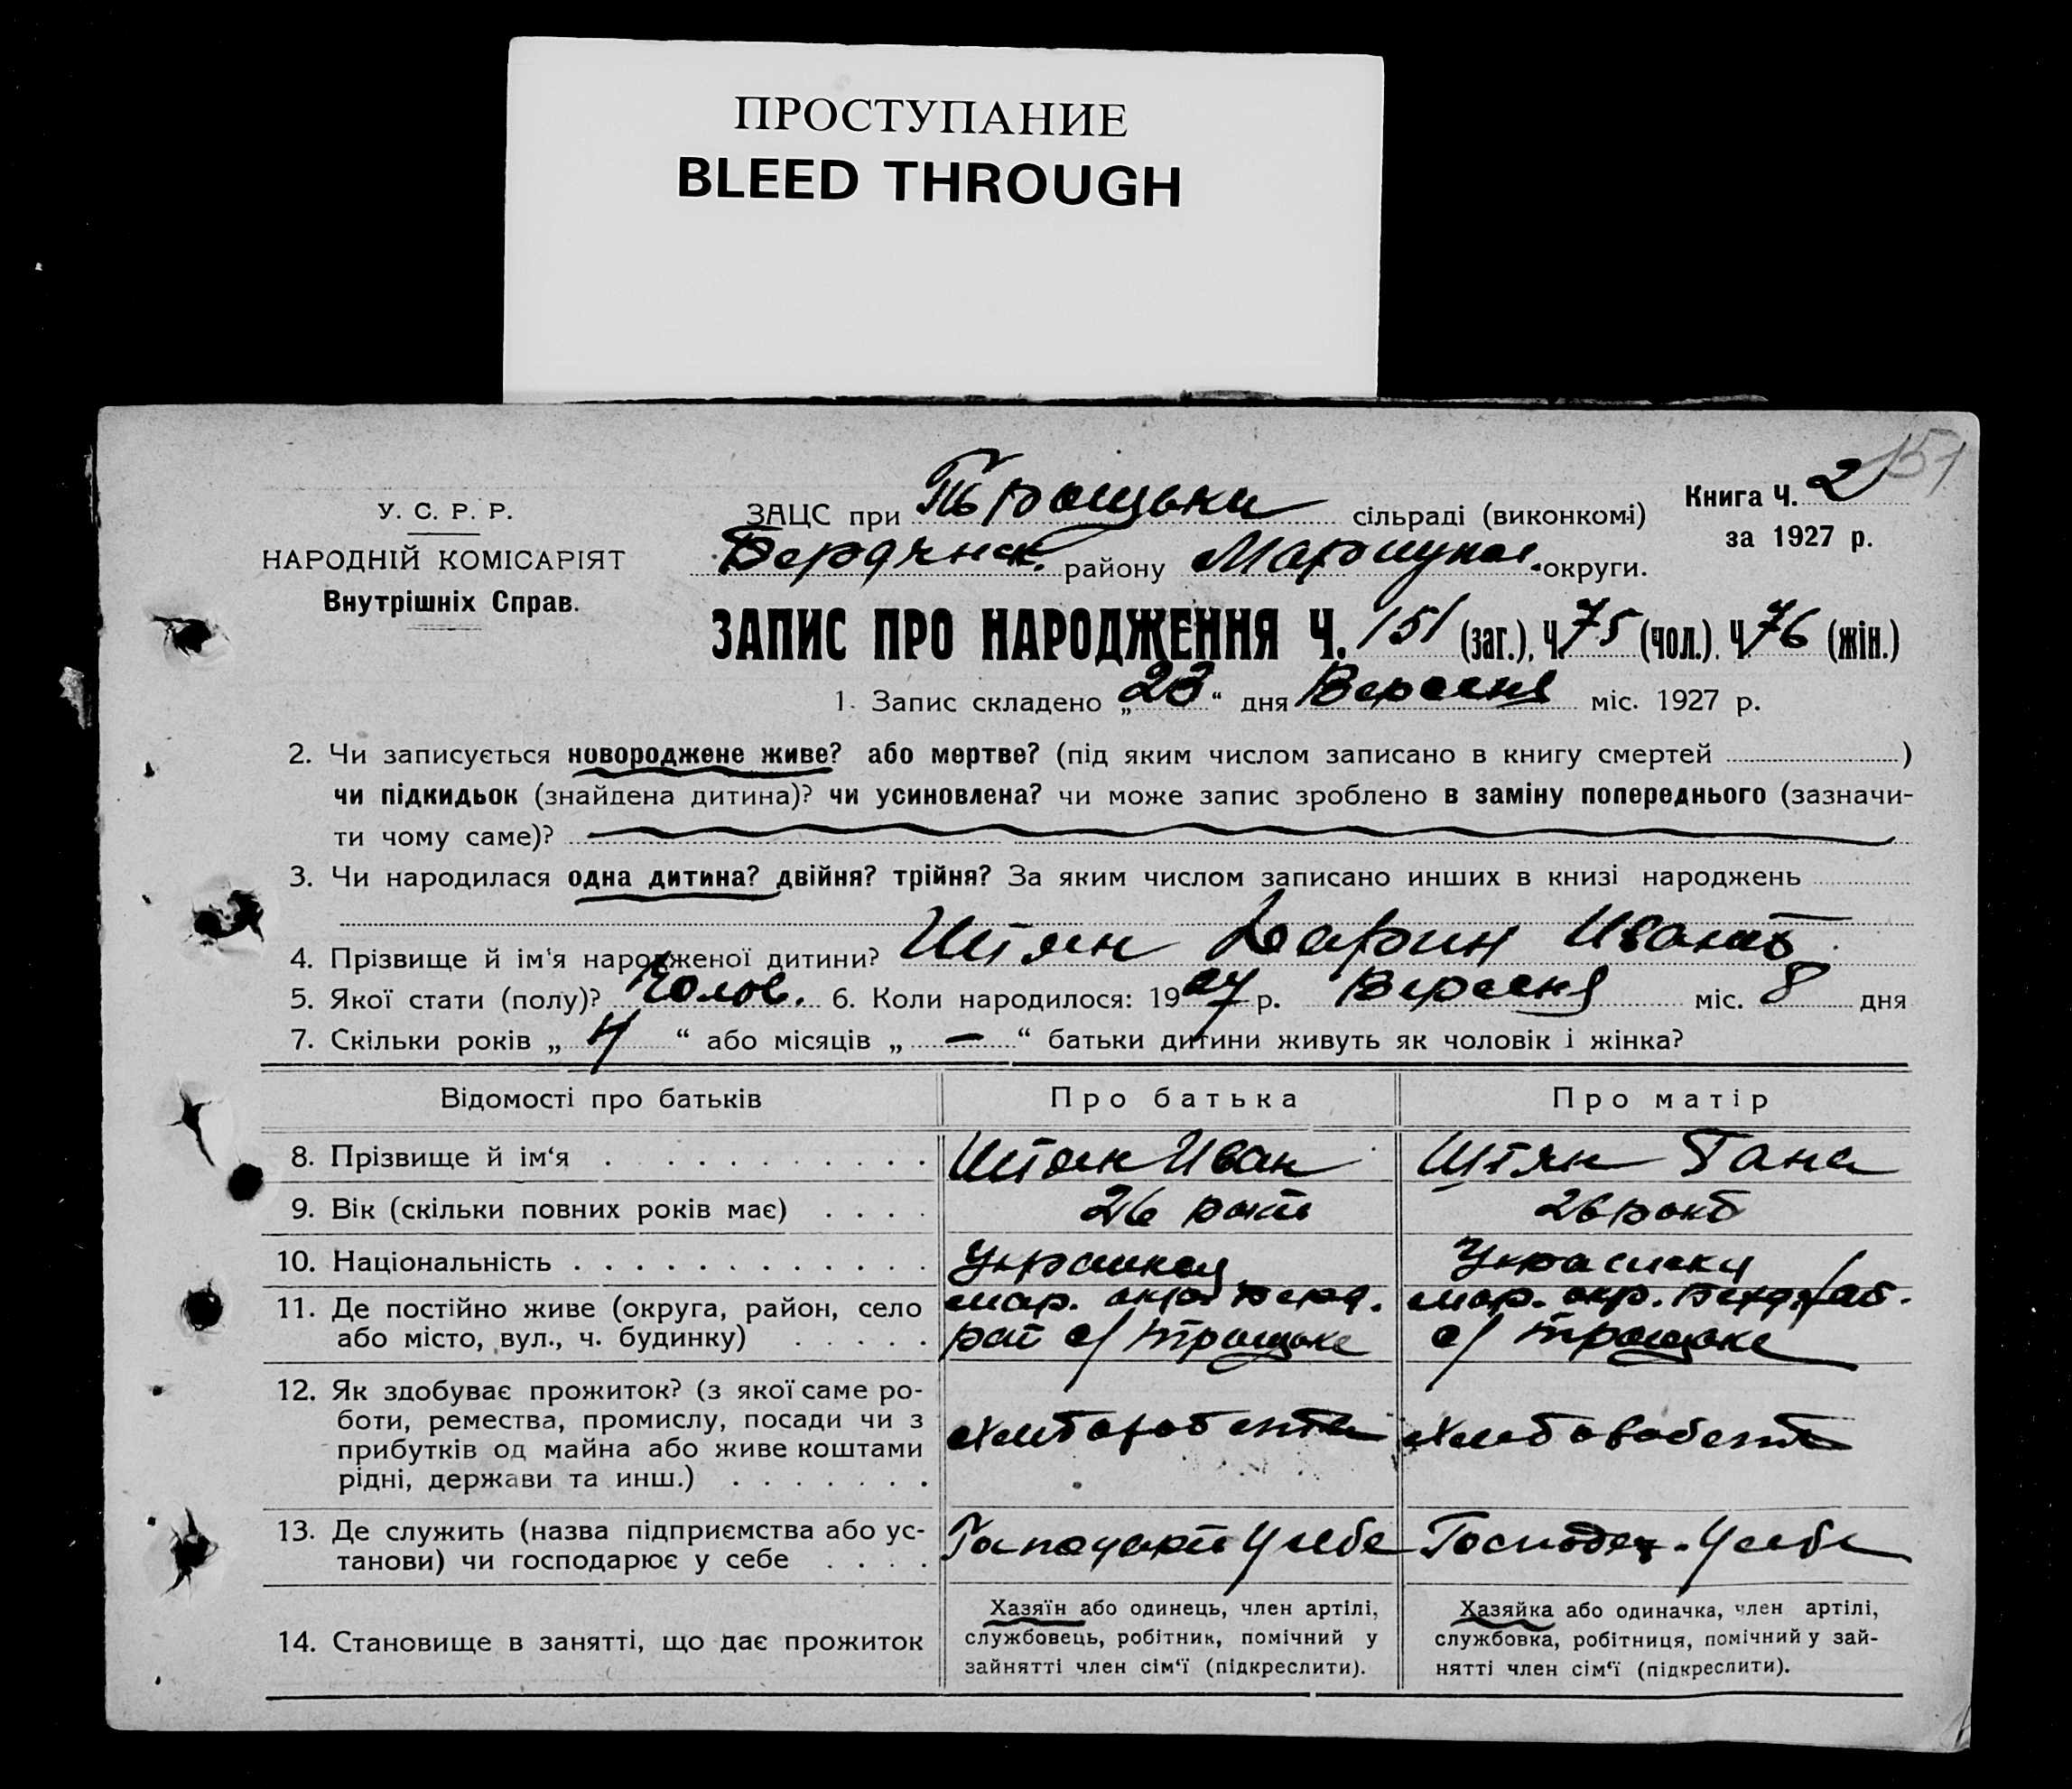 ПРОСТУПАНИЕ
BLEED THROUGH
151
У. С. Р. Р.
НАРОДНІЙ КОМІСАРІЯТ
Внутрішніх Справ.
ЗАЦС при сільраді (виконкомі)
Бердянск. району Мариупол. округи.
Книга Ч. 2
за 1927 р.
ЗАПИС ПРО НАРОДЖЕННЯ Ч. 151 (заг.), Ч. 75 (чол.). Ч. 76 (жін.)
1. Запис складено „23“ дня Вересня міс. 1927 р.
2. Чи записується новороджене живе? або мертве? (під яким числом записано в книгу смертей )
чи підкидьок (знайдена дитина)? чи усиновлена? чи може запис зроблено в заміну попереднього (зазначи-
ти чому саме)?
3. Чи народилася одна дитина? двійня? трійня? За яким числом записано инших в книзі народжень
4. Прізвище й ім'я народженої дитини? Штян
5. Якої стати (полу)? Чолов. 6. Коли народилося: 1927 р. Вересня міс. 8 дня
7. Скільки років „ 4 “ або місяців „ — “ батьки дитини живуть як чоловік і жінка?
Відомості про батьків
Про батька
Про матір
8. Прізвище й ім'я
Штян Иван
Штян Гана
9. Вік (скільки повних років має)
26
26
10. Національність
11. Де постійно живе (округа, район, село
або місто, вул., ч. будинку)
мар. окр.
мар. окр.
с/
с/
12. Як здобуває прожиток? (з якої саме ро-
боти, ремества, промислу, посади чи з
прибутків од майна або живе коштами
рідні, держави та инш.)
13. Де служить (назва підприємства або ус-
танови) чи господарює у себе
у себе
у себе
14. Становище в занятті, що дає прожиток
Хазяїн або одинець, член артілі,
службовець, робітник, помічний у
зайнятті член сім'ї (підкреслити).
Хазяйка або одиначка, член артілі,
службовка, робітниця, помічний у зай-
нятті член сім'ї (підкреслити).